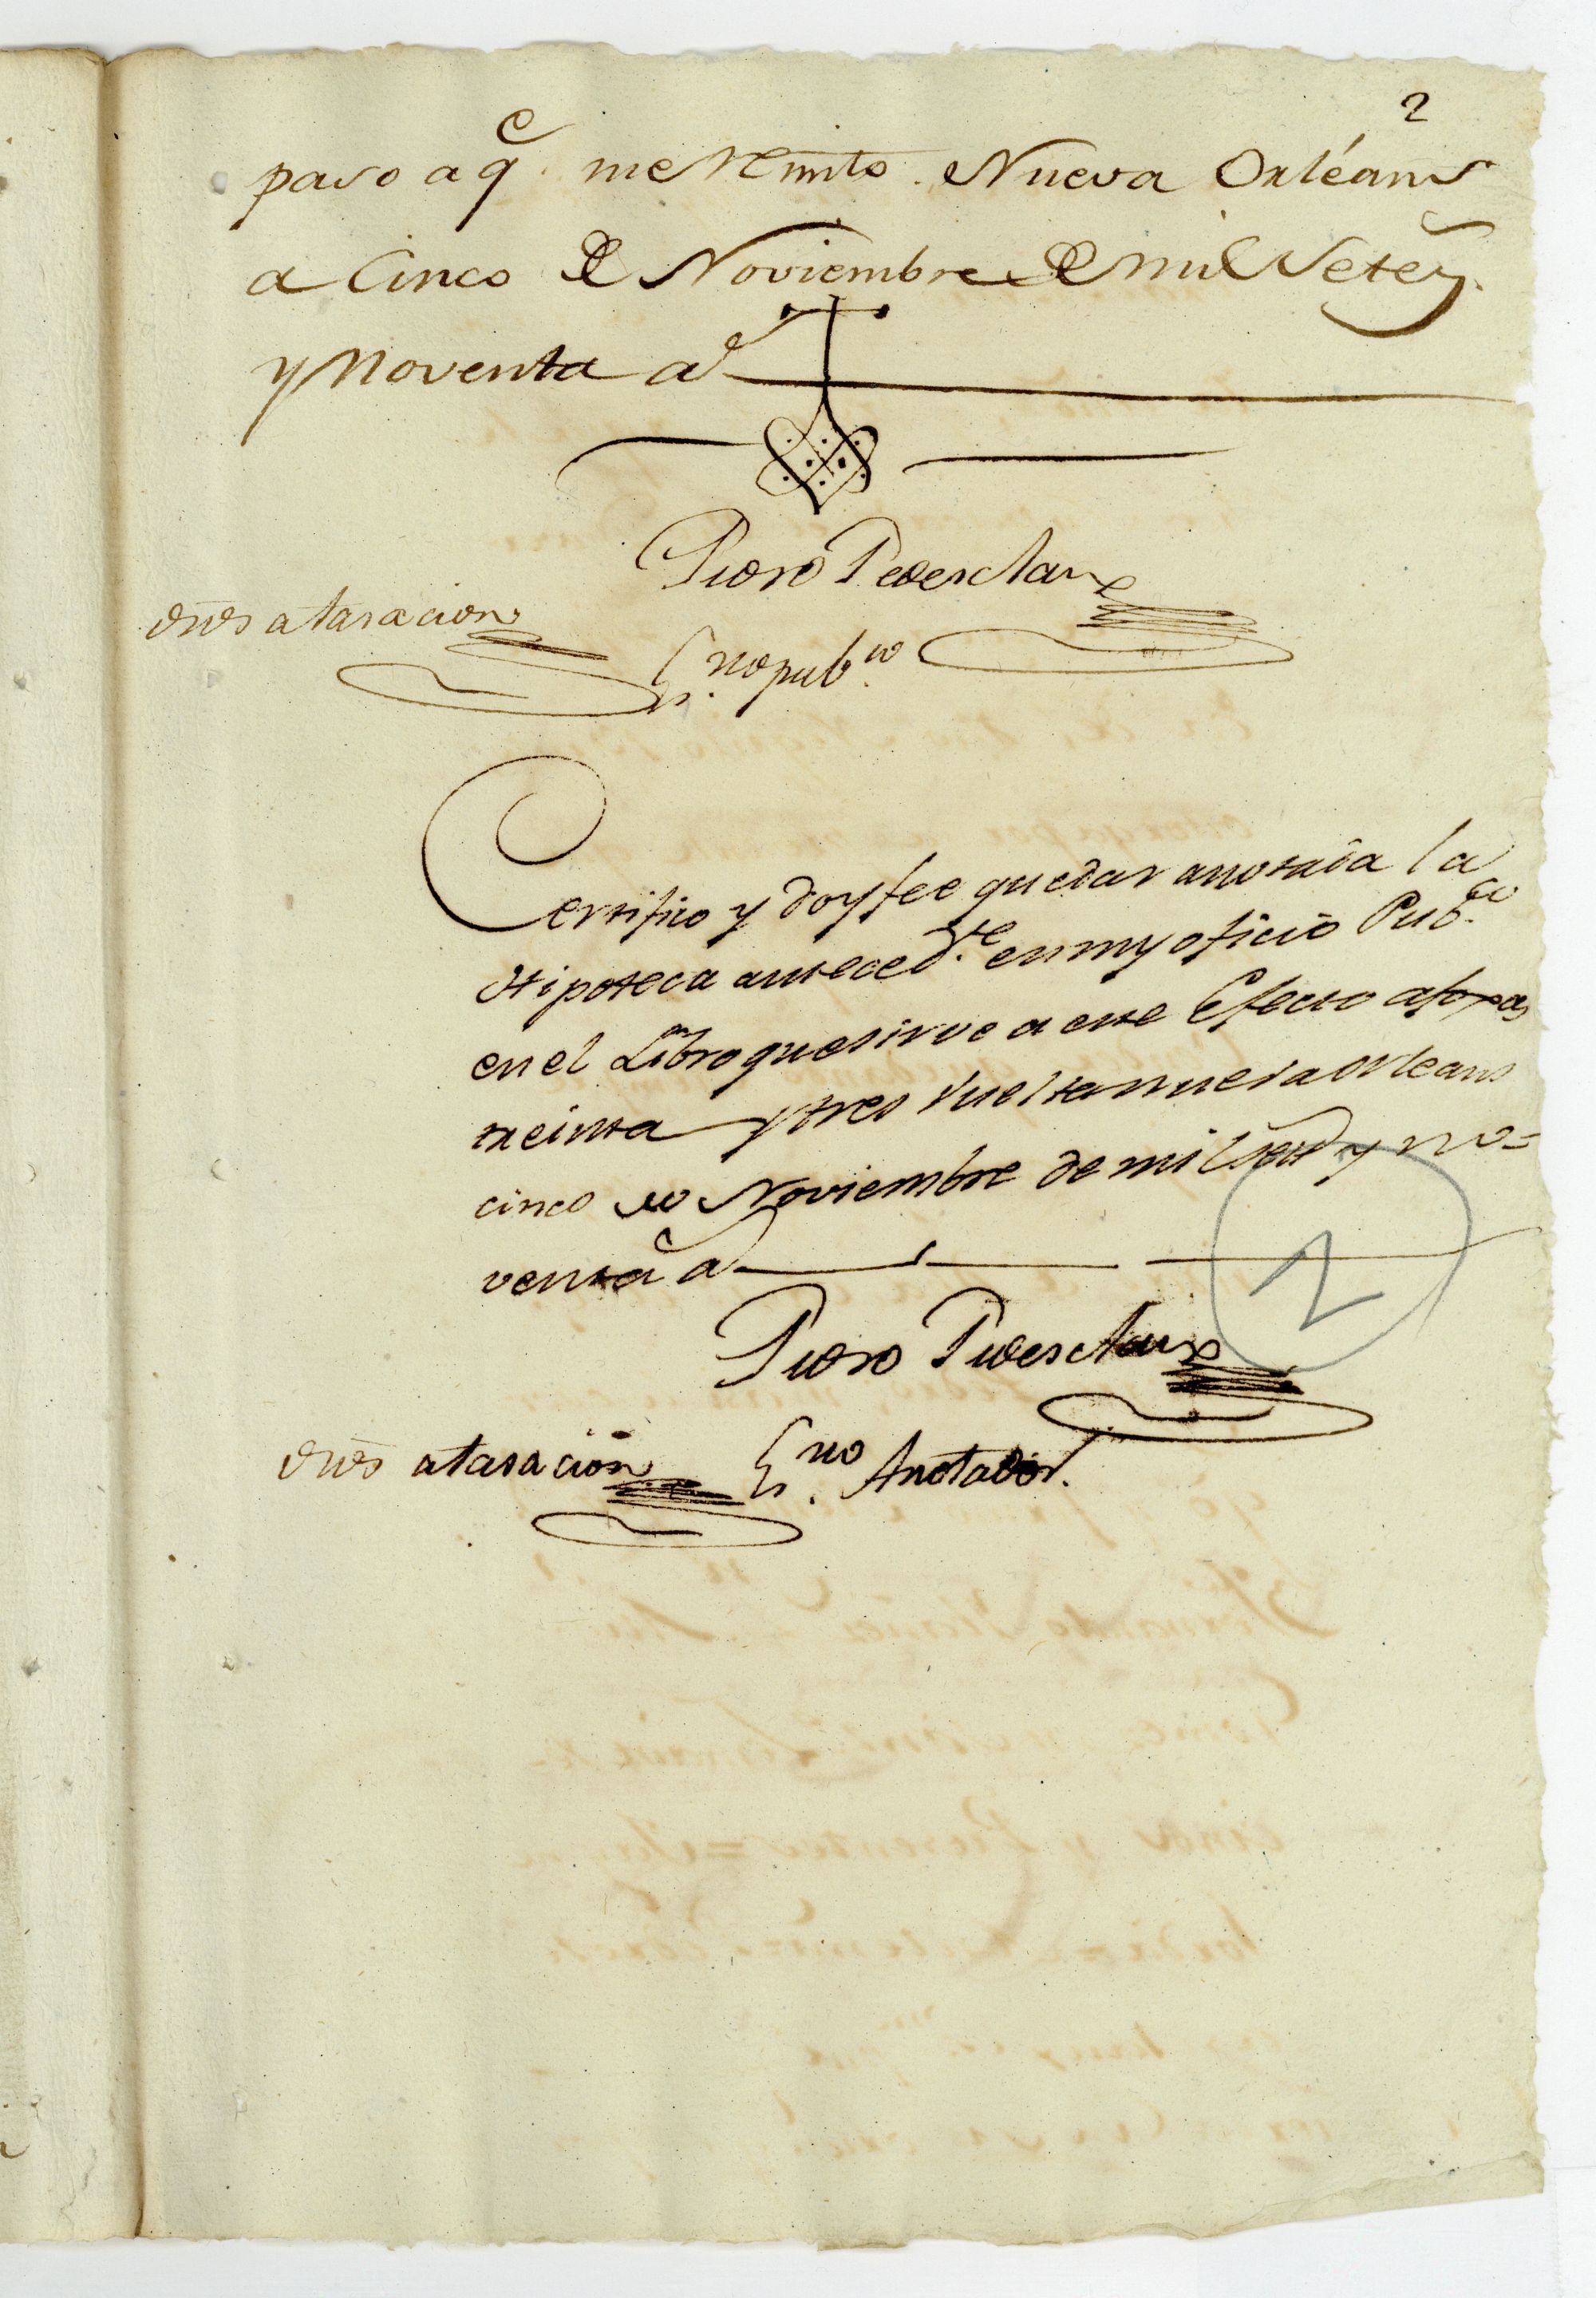 2
paso a q.e me Remito. Nueva Orléans
a Cinco de Noviembre de mil Setes.
y Noventa a.s
Pedro Pedesclaux
dros a tasacion
Es.no pub.co
Certifico y doy fee quedar anotada la
Hipoteca anteced.te en my oficio Pub.co
en el Libro que sirve a este Efecto afoxas
treinta y tres vuelta nueva orleans
cinco de Noviembre de mil sett.s y no=
venta a.s
Pedro Pedesclaux
dros a tasacion Es.no Anotador.
2